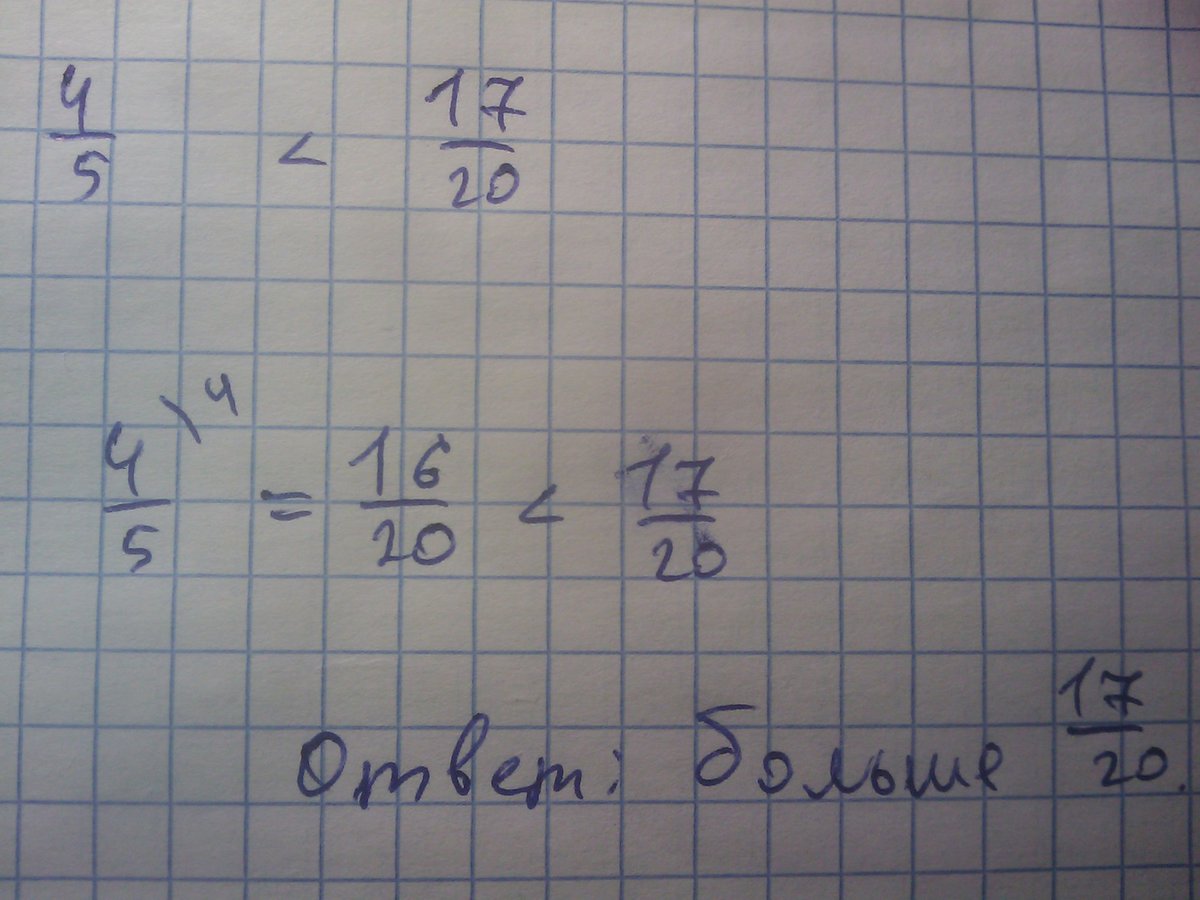 4/5 < 17/20
4/5 \4 = 16/20 < 17/20
Ответ: больше 17/20.